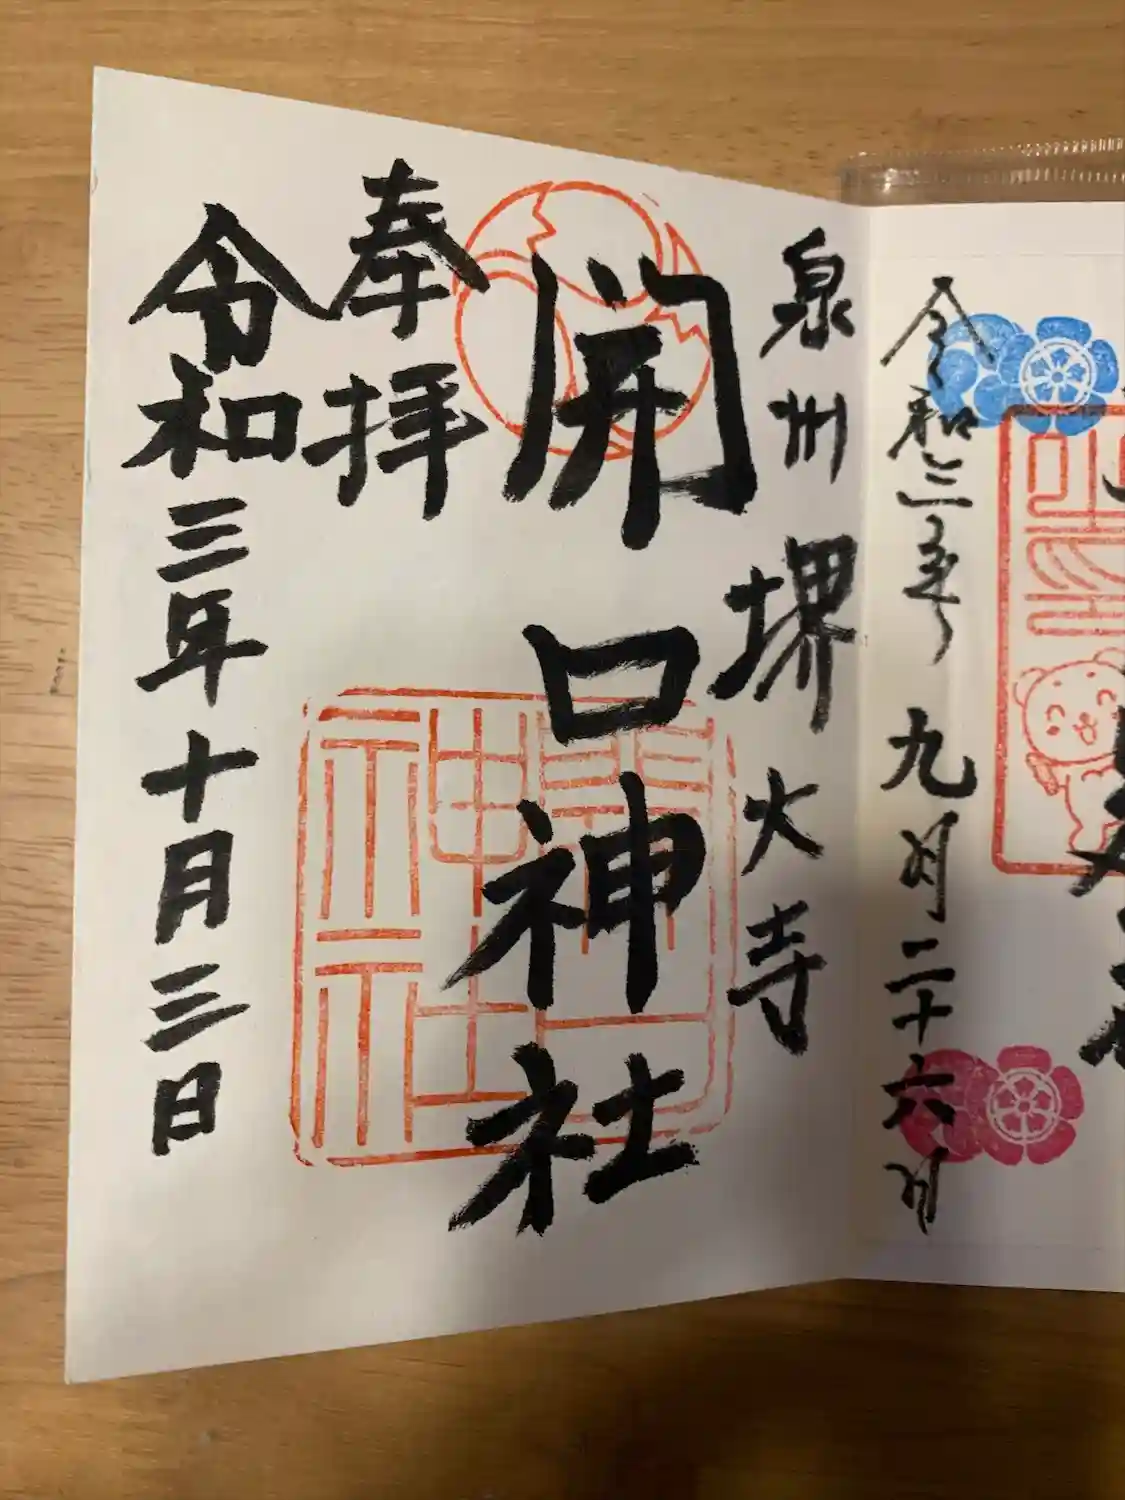 令和三年九月二十六日
泉州堺大寺
開口神社
奉拝
令和三年十月三日
開口神社